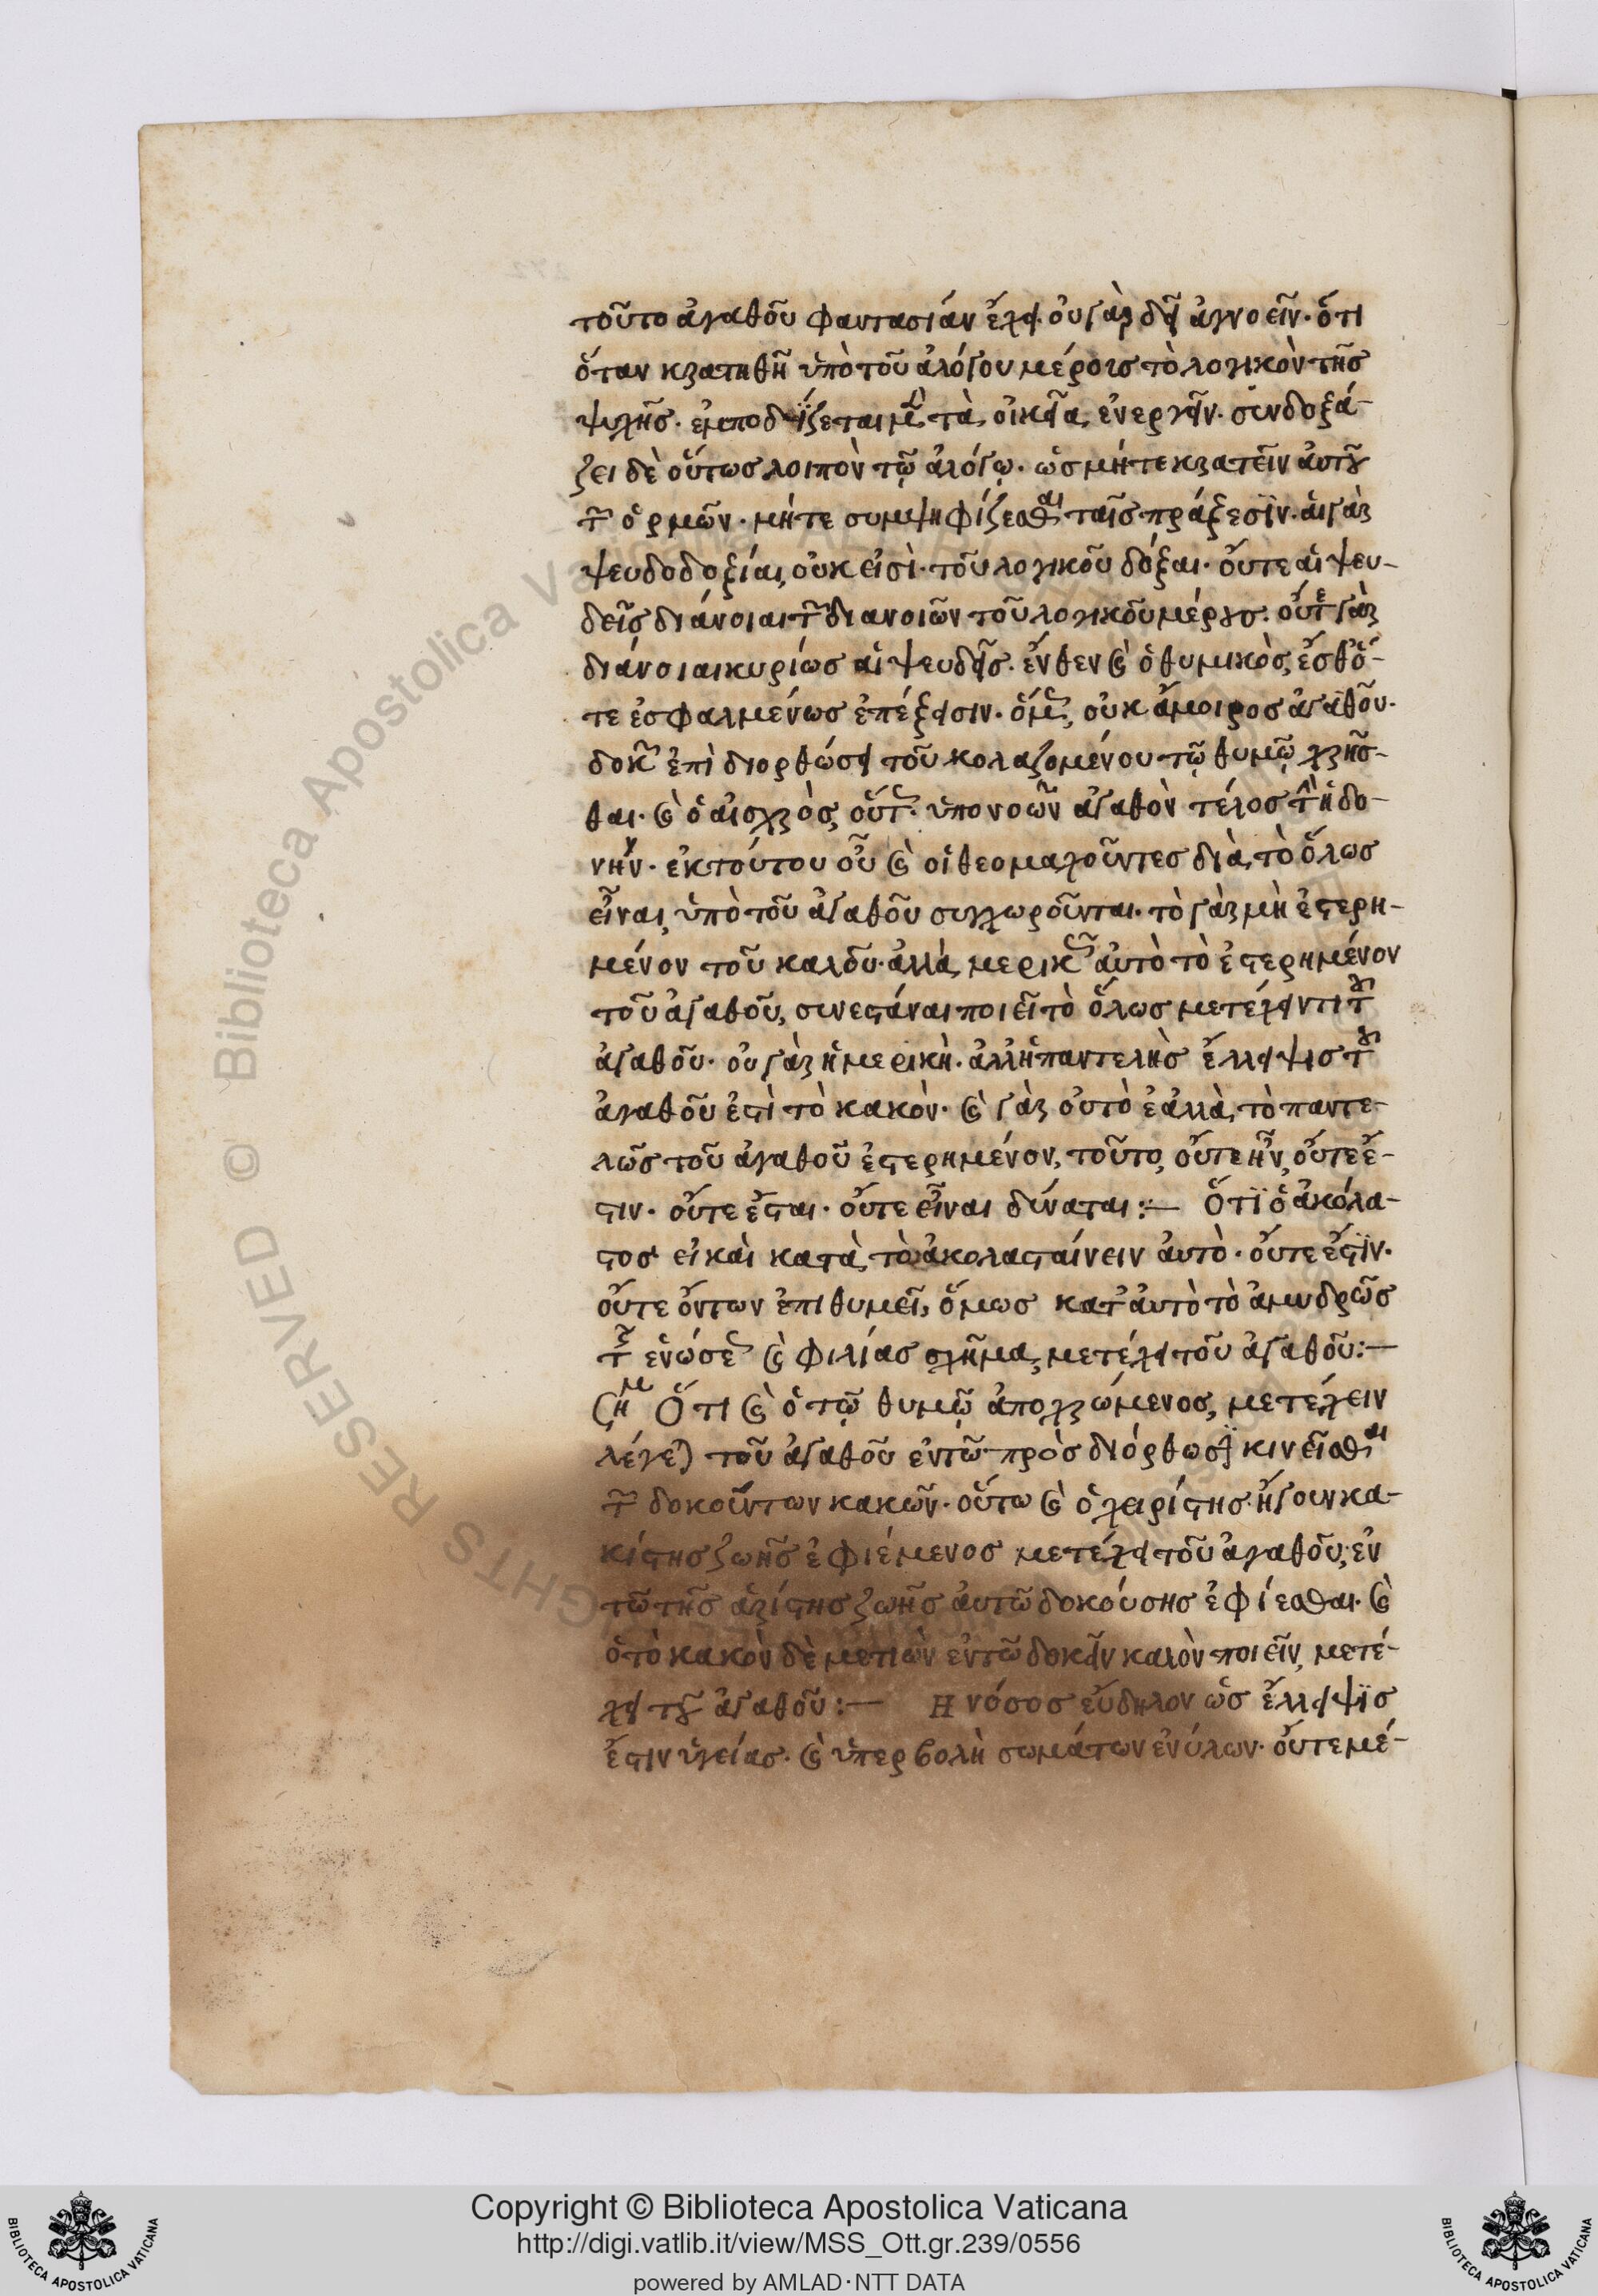 τοῦτο ἀγαθοῦ φαντασίαν ἔχει. οὐ γὰρ δεῖ ἀγνοεῖν· ὅτι
ὅταν κρατηθῆ ὑπὸ τοῦ ἀλόγου μέρους τὸ λογικὸν τῆς
ψυχῆς· ἐμποδίζεται μ(ὲν) τὰ οἰκεῖα ἐνεργεῖν· συνδοξά-
ζει δὲ οὕτως λοιπὸν τῷ ἀλόγῳ· ὡς μήτε κρατεῖν αὐτοῦ
τ(ῶν) ὁρμῶν· μήτε συμψηφίζεσθαι ταῖς πράξεσϊν· αἱ γὰρ
ψευδοδοξίαι, οὐκ εἰσὶ· τοῦ λογικοῦ δόξαι· οὔτε αἱ ψευ-
δεῖς διάνοιαι τ(ῶν) διανοιῶν τοῦ λογικοῦ μέρους· οὔτε γὰρ
διάνοιαι κυρίως αἱ ψευδεῖς· ἔνθεν καὶ ὁ θυμικὸς, ἔσθ' ὅ-
τε ἐσφαλμένως ἐπέξεισιν· ὅμ(ως), οὐκ ἄμοιρος ἀγαθοῦ·
δοκ(εῖ) ἐπὶ διορθώσει τοῦ κολαζομένου τῷ θυμῷ χρῆσ-
θαι· καὶ ὁ αἰσχρὸς, οὕτ(ως)· ὑπονοῶν ἀγαθὸν τέλος τ(ὴν) ἡδο-
νήν· ἐκ τούτου οὖν καὶ οἱ θεομαχοῦντες διὰ τὸ ὅλως
εἶναι, ὑπὸ τοῦ ἀγαθοῦ συγχωροῦνται· τὸ γὰρ μὴ ἐστερη-
μένον τοῦ καλοῦ· ἀλλὰ μερικ(ῶς) αὐτὸ τὸ ἐστερημένον
τοῦ ἀγαθοῦ, συνεστάναι ποιεῖ τὸ ὅλως μετέχειν τι τοῦ
ἀγαθοῦ· οὐ γὰρ ἡ μερικὴ· ἀλλ' ἡ παντελὴς ἔλλειψις τοῦ
ἀγαθοῦ ἐστὶ τὸ κακὸν· καὶ γὰρ οὐ τὸ ἐ ἀλλὰ, τὸ παντε-
λῶς τοῦ ἀγαθοῦ ἐστερημένον, τοῦτο, οὔτε ἦν, οὔτε ἔ-
στιν· οὔτε ἔσται· οὔτε εἶναι δύναται:— Ὅτϊ ὁ ἀκόλα-
στος εἰ καὶ κατὰ τὸ ἀκολασταίνειν αὐτὸ· οὔτε ἔστϊν·
οὔτε ὄντων ἐπιθυμεῖ, ὅμως κατ' αὐτὸ τὸ ἀμυδρῶς
τ(ῆς) ἑνώσεως καὶ φιλίας σχῆμα, μετέχει τοῦ ἀγαθοῦ:—
Σημ Ὅτι καὶ ὁ τῷ θυμῷ ἀποχρώμενος, μετέχειν
λέγε(ται) τοῦ ἀγαθοῦ ἐν τῶ πρὸς διόρθωσιν κινεῖσθαι
τ(ῶν) δοκούντων κακῶν· οὕτω καὶ ὁ χειρίστης· ἤγουν κα-
κίστης ζωῆς ἐφιέμενος μετέχει τοῦ ἀγαθοῦ, ἐν
τῶ τῆς ἀρίστης ζωῆς αὐτῶ δοκούσης ἐφίεσθαι· καὶ
ὁ τὸ κακὸν δὲ μετιὼν ἐν τῶ δοκεῖν καλὸν ποιεῖν, μετέ-
χει τοῦ ἀγαθοῦ:— Η νόσος εὔδηλον ὡς ἔλλειψϊς
ἔστιν ὑγείας· καὶ ὑπερβολὴ σωμάτων ἐνύλων· οὔτε μέ-
Copyright © Biblioteca Apostolica Vaticana
http://digi.vatlib.it/view/MSS_Ott.gr.239/0556
powered by AMLAD·NTT DATA